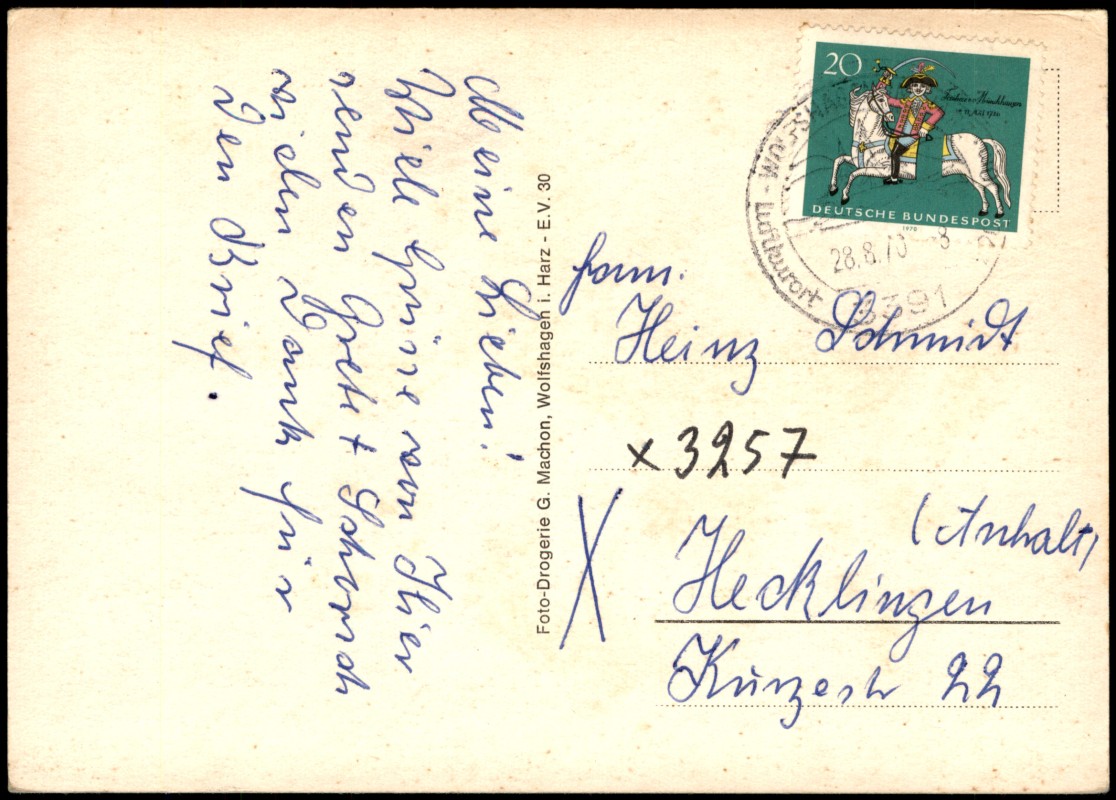 Meine Lieben!
Viele Grüsse von Ihier
senden Grete +
vielen Dank für
Den Brief.
Foto-Drogerie G. Machon, Wolfshagen i. Harz - E.V. 30
20
11. Mai 1720
DEUTSCHE BUNDESPOST
1970
WOLFSHA
Luftkurort
28.8.70 -8
3391
Fam.
Heinz Schmidt
x 3257
(Anhalt)
Hecklingen
Kurzestr 22